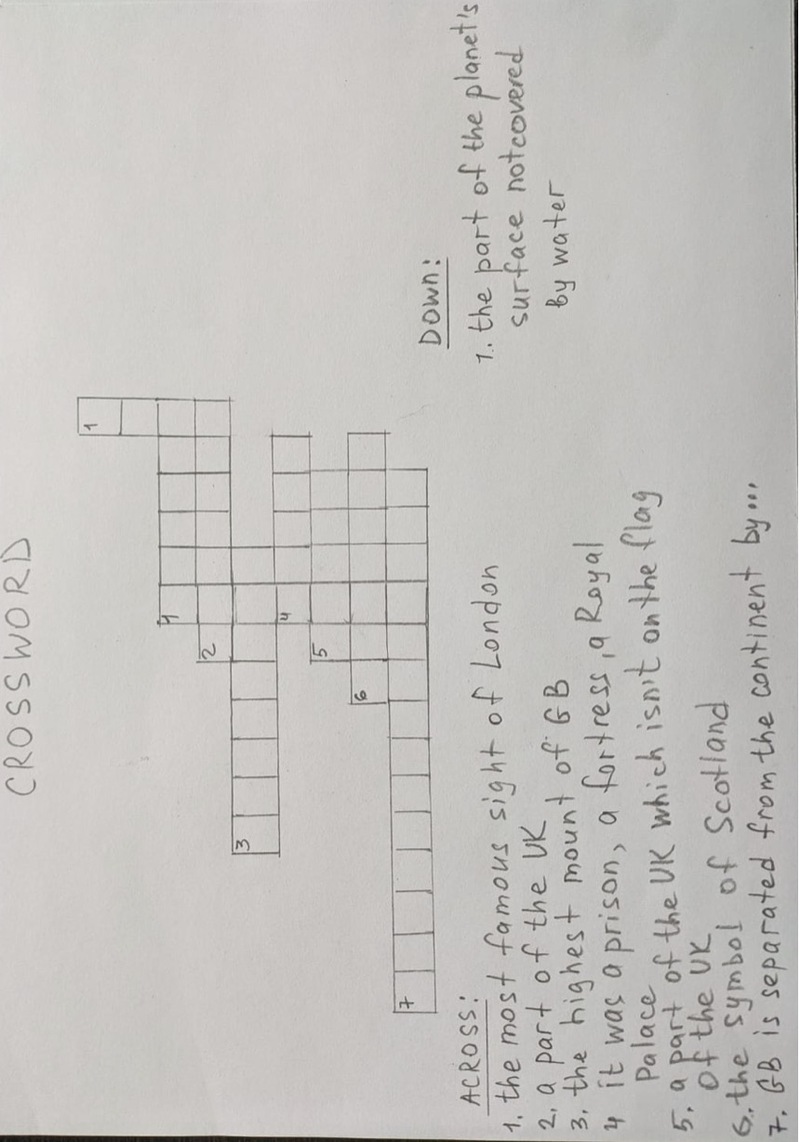 CROSSWORD
1
1
2
3
4
5
6
7
ACROSS:
1. the most famous sight of London
2. a part of the UK
3. the highest mount of GB
4 it was a prison, a fortress, a Royal
Palace
5. a part of the UK which isn't on the flag
of the UK
6. the symbol of Scotland
7. GB is separated from the continent by...
DOWN:
1. the part of the planet's
surface notcovered
by water